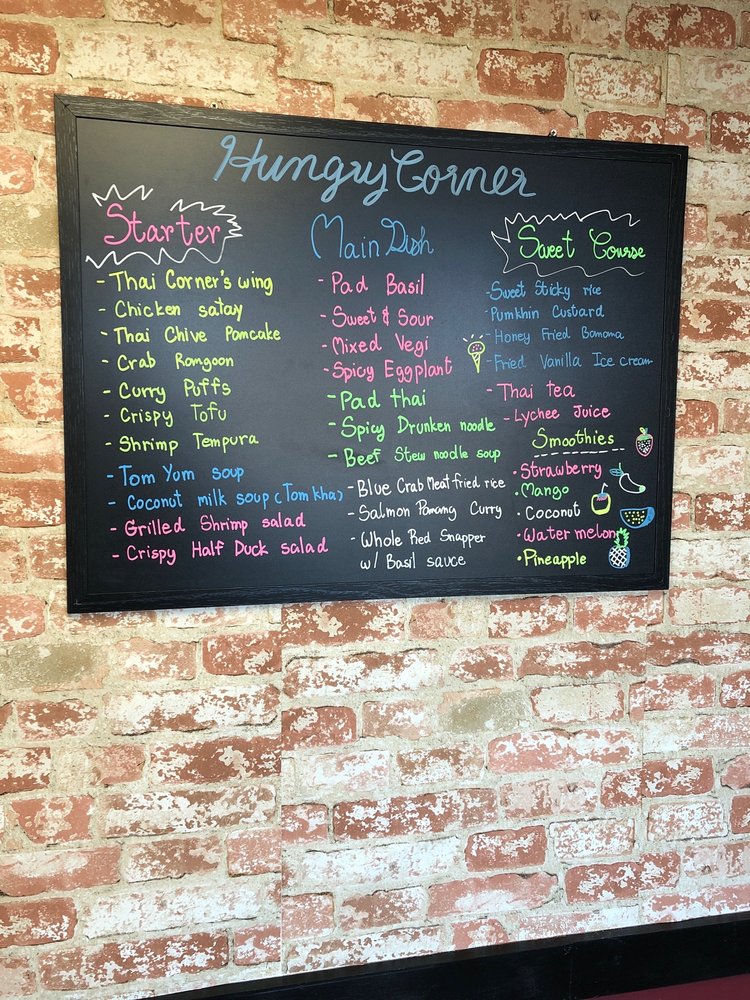 Hungry Corner
Starter
- Thai Corner's wing
- Chicken satay
- Thai Chive Pancake
- Crab Rangoon
- Curry Puffs
- Crispy Tofu
- Shrimp Tempura
- Tom Yum soup
- Coconut milk soup (Tom kha)
- Grilled Shrimp salad
- Crispy Half Duck salad
Main Dish
- Pad Basil
- Sweet & Sour
- Mixed Vegi
- Spicy Eggplant
- Pad thai
- Spicy Drunken noodle
- Beef Stew noodle soup
- Blue Crab Meat fried rice
- Salmon Panang Curry
- Whole Red Snapper
w/ Basil sauce
Sweet Course
- Sweet Sticky rice
- Pumkhin Custard
- Honey Fried Banana
- Fried Vanilla Ice cream
- Thai tea
- Lychee Juice
Smoothies
• Strawberry
• Mango
• Coconut
• Water melon
• Pineapple